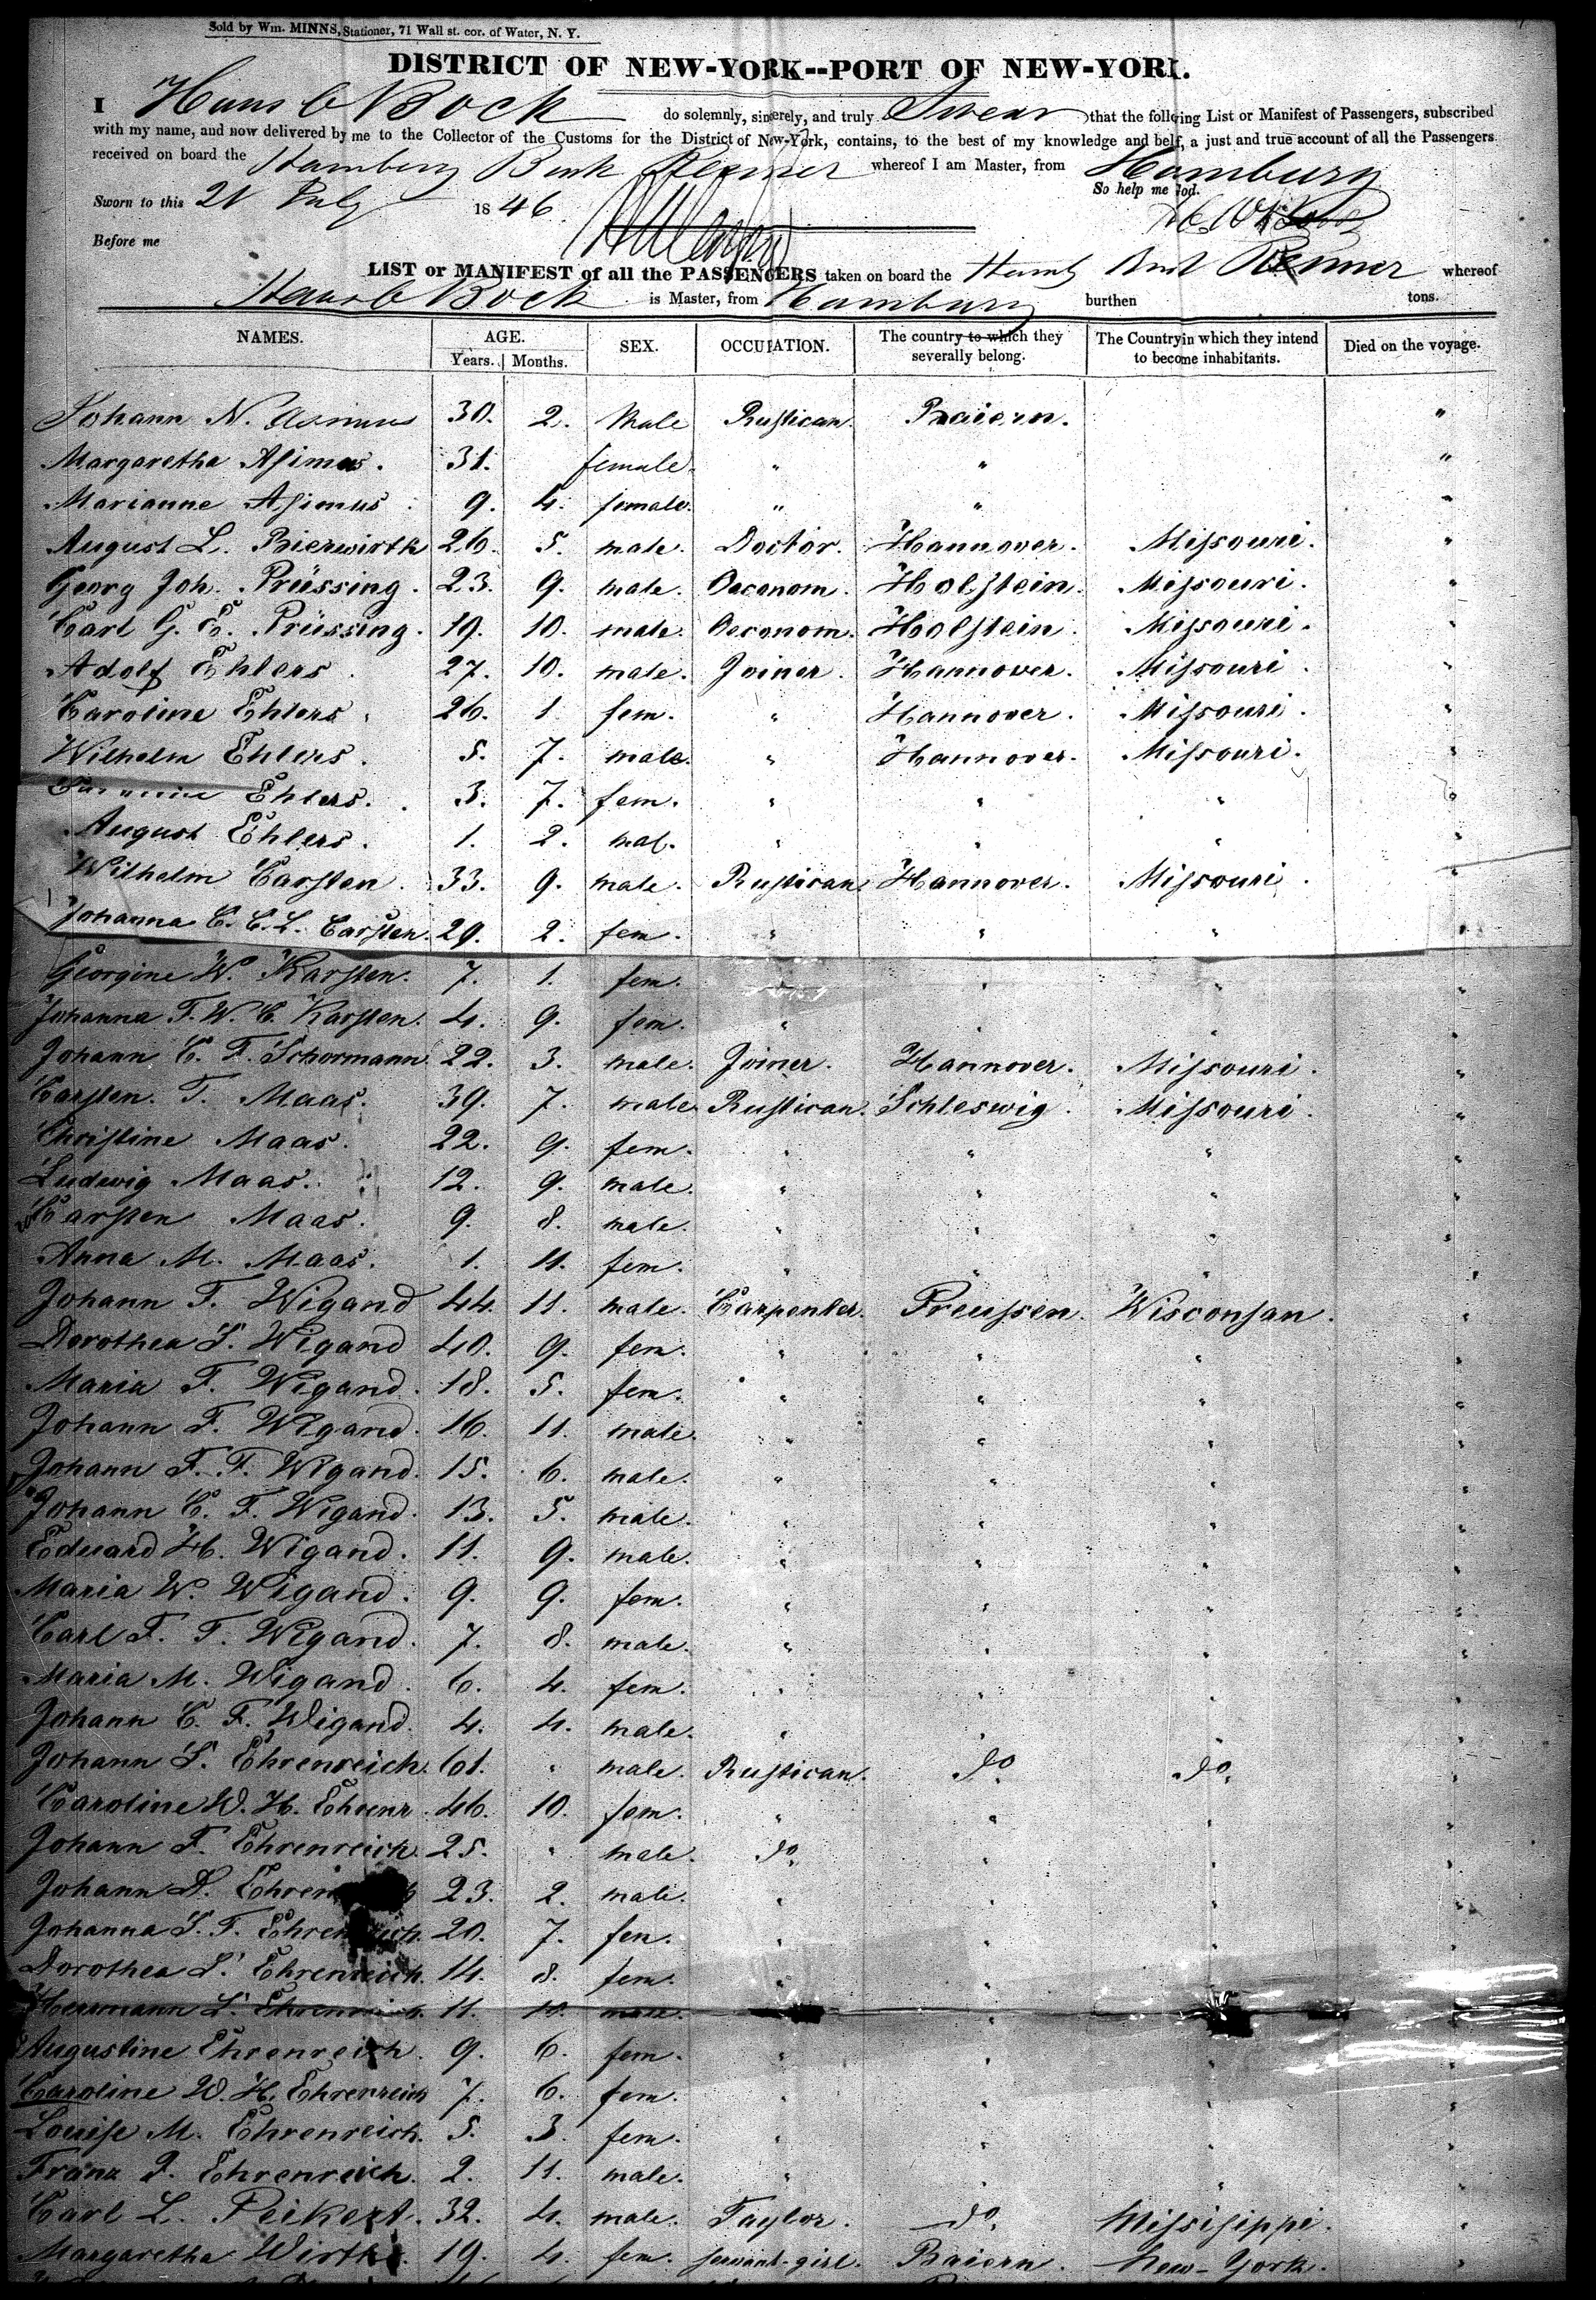 Sold by Wm. MINNS, Stationer, 71 Wall st. cor. of Water, N. Y.
DISTRICT OF NEW-YORK--PORT OF NEW-YORK.
I Hans C Bock do solemnly, sincerely, and truly Swear that the following List or Manifest of Passengers, subscribed
with my name, and now delivered by me to the Collector of the Customs for the District of New-York, contains, to the best of my knowledge and belief, a just and true account of all the Passengers
received on board the Hamburg Bark Renner whereof I am Master, from Hamburg
So help me God.
Sworn to this 21 July 1846
Before me
LIST or MANIFEST of all the PASSENGERS taken on board the Hamb Renner whereof
Hans C Bock is Master, from Hamburg burthen tons.
NAMES. AGE. SEX. OCCUPATION. The country to which they severally belong. The Country in which they intend to become inhabitants. Died on the voyage.
Years. Months.
Johann N. Asimus 30. 2. Male Rustican. Baiern. "
Margaretha Asimus. 31. female. " " "
Marianne Asimus 9. 4. female. " " "
August L. Bierwirth 26. 5. male. Doctor. Hannover. Missouri. "
Georg Joh. Prüssing. 23. 9. male. Oeconom. Holstein. Missouri. "
Carl G. E. Prüssing. 19. 10. male. Oeconom. Holstein. Missouri. "
Adolf Ehlers 27. 10. male. Joiner. Hannover. Missouri. "
Caroline Ehlers. 26. 1. fem. " Hannover. Missouri. "
Wilhelm Ehlers. 5. 7. male. " Hannover. Missouri. "
Ehlers. 3. 7. fem. " " " "
August Ehlers. 1. 2. mal. " " " "
Wilhelm Carsten. 33. 9. male. Rustican. Hannover. Missouri. "
Johanna C. C. L. Carsten. 29. 2. fem. " " " "
Georgine W. Karsten. 7. 1. fem. " " " "
Johanna F. W. C. Karsten. 4. 9. fem. " " " "
Johann C. F. Schormann. 22. 3. male. Joiner. Hannover. Missouri. "
Carsten. T. Maas. 39. 7. male Rustican. Schleswig. Missouri. "
Christine Maas. 22. 9. fem. " " " "
Ludewig Maas. 12. 9. male. " " " "
Carsten Maas. 9. 8. male. " " " "
Anna M. Maas. 1. 11. fem. " " " "
Johann F. Wigand 44. 11. male. Carpenter. Preussen. Wisconsan. "
Dorothea S. Wigand 40. 9. fem. " " " "
Maria F. Wigand. 18. 5. fem. " " " "
Johann F. Wigand. 16. 11. male. " " " "
Johann F. F. Wigand. 15. 6. male. " " " "
Johann C. F. Wigand. 13. 5. male. " " " "
Eduard H. Wigand. 11. 9. male. " " " "
Maria W. Wigand. 9. 9. fem. " " " "
Carl F. F. Wigand. 7. 8. male. " " " "
Maria M. Wigand. 6. 4. fem. " " " "
Johann C. F. Wigand. 4. 4. male. " " " "
Johann S. Ehrenreich. 61. " male. Rustican. do. do. "
Caroline W. H. Ehrenr. 46. 10. fem. " " " "
Johann F. Ehrenreich. 25. " male. do. " " "
Johann D. 23. 2. male. " " " "
Johanna S. F. Ehrenreich. 20. 7. fem. " " " "
Dorothea S. Ehrenreich. 14. 8. fem. " " " "
Herrmann S. Ehrenreich. 11. 10. male. "
Augustine Ehrenreich. 9. 6. fem. " " " "
Caroline W. H. Ehrenreich 7. 6. fem. " " "
Louise M. Ehrenreich. 5. 3. fem. " " " "
Franz J. Ehrenreich. 2. 11. male. " " " "
Carl L. Peikert. 32. 4. male. Taylor. do. Missisippi. "
Margaretha Wirth. 19. 4. fem. servant-girl. Baiern. New-York. "